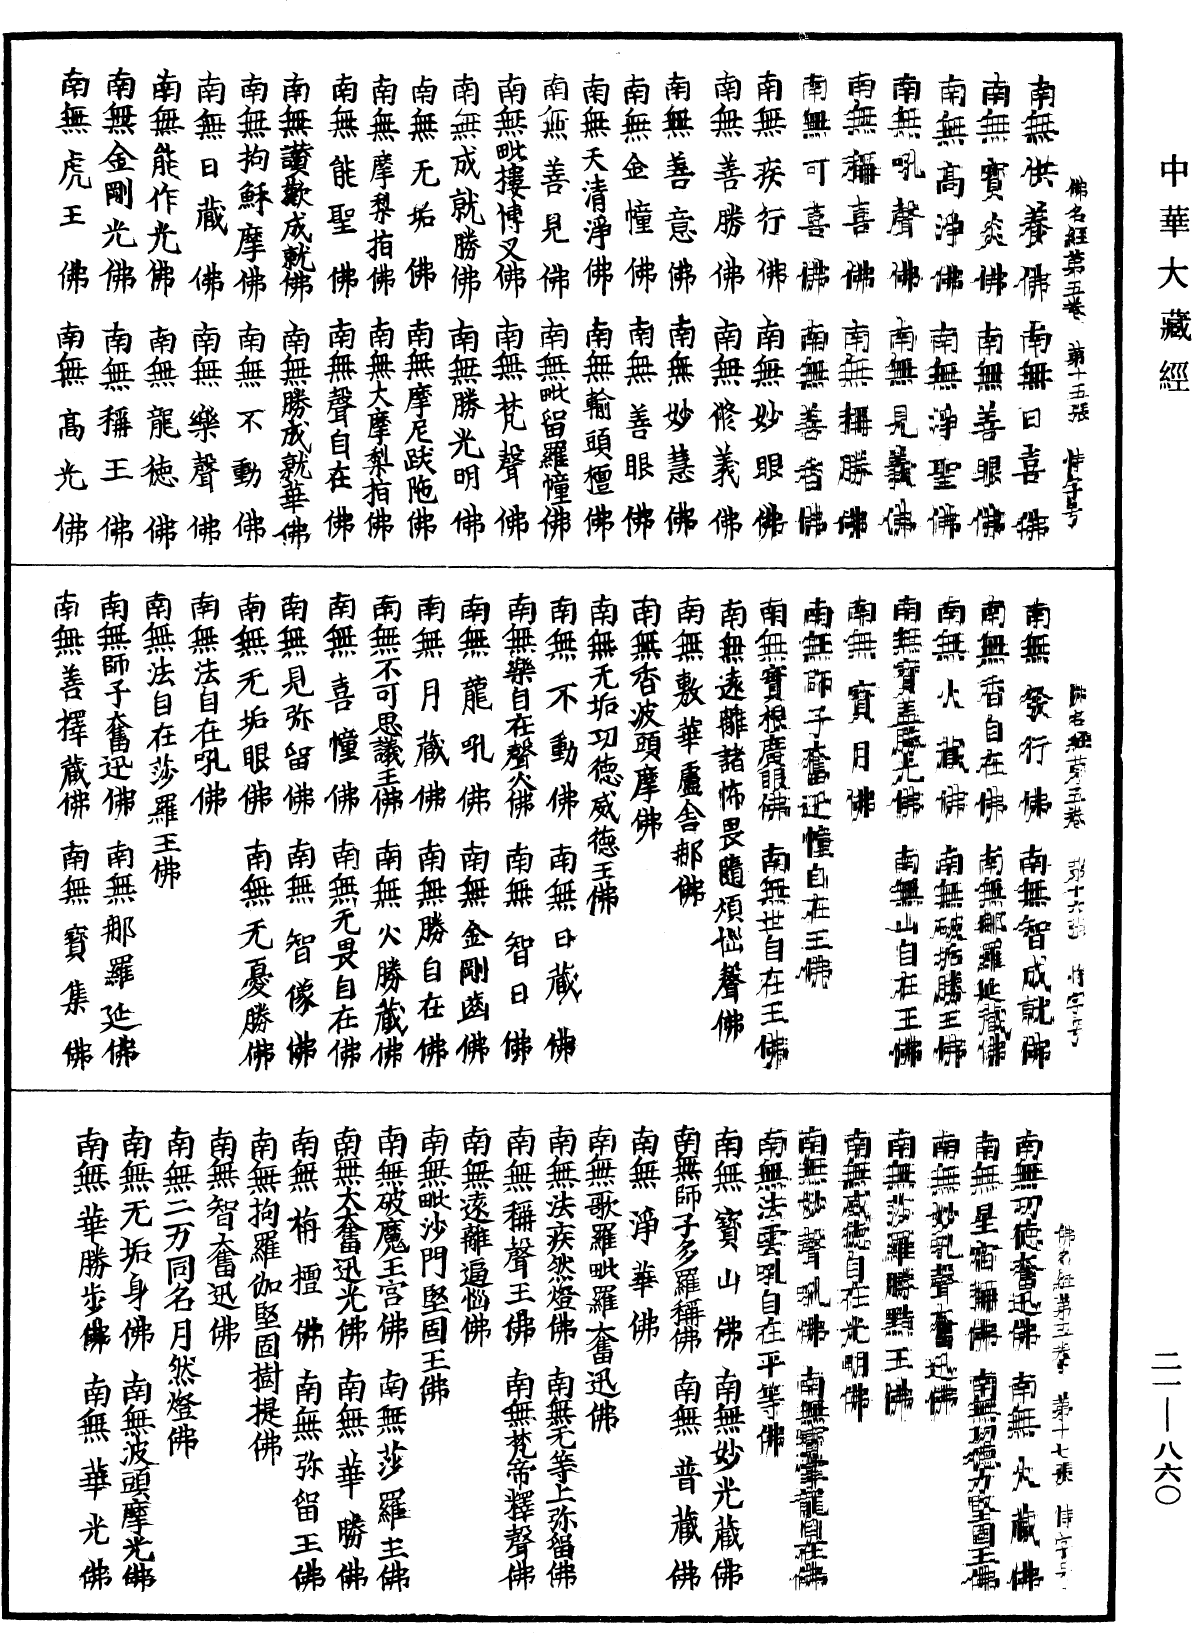 中華大藏經
佛名經第五卷 第十五張 恃字号
南無供養佛 南無日喜佛
南無寶炎佛 南無善眼佛
南無高淨佛 南無淨聖佛
南無吼聲佛 南無見義佛
南無稱喜佛 南無稱勝佛
南無可喜佛 南無善香佛
南無疾行佛 南無妙眼佛
南無善勝佛 南無修義佛
南無善意佛 南無妙慧佛
南無金幢佛 南無善眼佛
南無天清淨佛 南無輸頭檀佛
南無善見佛 南無毗留羅幢佛
南無毗摟博叉佛 南無梵聲佛
南無成就勝佛 南無勝光明佛
南無无垢佛 南無摩尼跋陁佛
南無摩梨指佛 南無大摩梨指佛
南無能聖佛 南無聲自在佛
南無讚歎成就佛 南無勝成就華佛
南無拘穌摩佛 南無不動佛
南無日藏佛 南無樂聲佛
南無能作光佛 南無龍徳佛
南無金剛光佛 南無稱王佛
南無虎王佛 南無高光佛
佛名經第五卷 第十六張 恃字号
南無發行佛 南無智成就佛
南無香自在佛 南無那羅延藏佛
南無火藏佛 南無破垢勝王佛
南無寶蓋勝光佛 南無山自在王佛
南無寶月佛
南無師子奮迅幢自在王佛
南無寶根廣眼佛 南無世自在王佛
南無遠離諸怖畏隨煩惱聲佛
南無敷華盧舍那佛
南無香波頭摩佛
南無无垢功徳威德王佛
南無不動佛 南無日藏佛
南無樂自在聲火佛 南無智日佛
南無龍吼佛 南無金剛齒佛
南無月藏佛 南無勝自在佛
南無不可思議王佛 南無火勝藏佛
南無喜幢佛 南無无畏自在佛
南無見弥留佛 南無智像佛
南無无垢眼佛 南無无憂勝佛
南無法自在吼佛
南無法自在莎羅王佛
南無師子奮迅佛 南無那羅延佛
南無善擇藏佛 南無寶集佛
佛名經第五卷 第十七張 恃字号
南無功德奮迅佛 南無火藏佛
南無星宿稱佛 南無功德力堅固王佛
南無妙吼聲奮迅佛
南無莎羅勝點王佛
南無威德自在光明佛
南無妙聲吼佛 南無寶掌龍自在佛
南無法雲吼自在平等佛
南無寶山佛 南無妙光藏佛
南無師子多羅稱佛 南無普藏佛
南無淨華佛
南無歌羅毗羅奮迅佛
南無法疾然燈佛 南無无等上弥留佛
南無稱聲王佛 南無梵帝釋聲佛
南無遠離逼惱佛
南無毗沙門堅固王佛
南無破魔王宫佛 南無莎羅主佛
南無大奮迅光佛 南無華勝佛
南無栴檀佛 南無弥留王佛
南無拘羅伽堅固樹提佛
南無智奮迅佛
南無二万同名月然燈佛
南無无垢身佛 南無波頭摩光佛
南無華勝步佛 南無華光佛
二一—八六〇